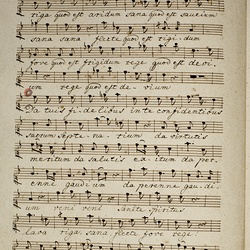 riga quod est aridum sana quod est saucium
sana sana flecte quod est rigidum
fove quod est frigidum rege quod est devi
um rege quod est devium
Da tuis fidelibus in te confidentibus
sacrum septenarium da virtutis
meritum da salutis exitum da per
enne gaudium da perenne gaudi
um veni veni sancte spiritus
lava riga sana flecte fove rege